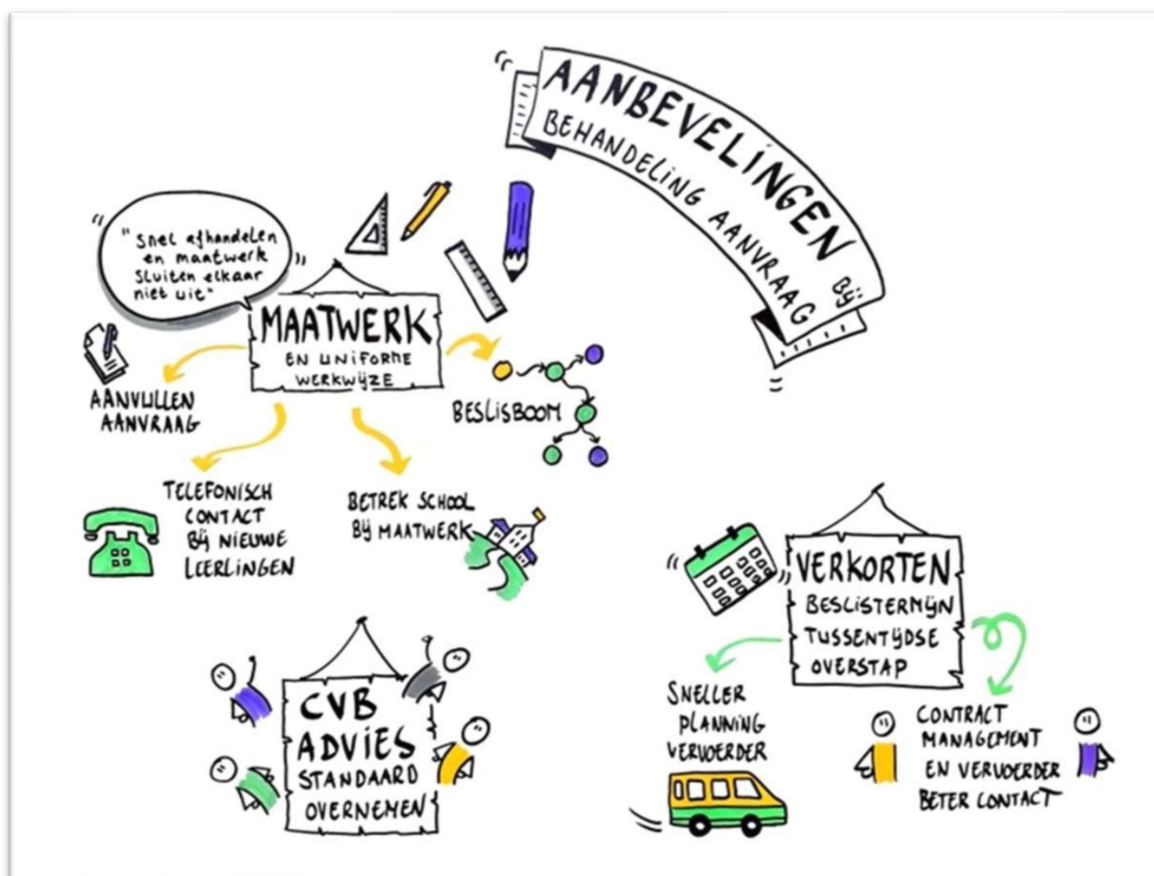 AANBEVELINGEN BIJ:
BEHANDELING AANVRAAG
"Snel afhandelen
en maatwerk
sluiten elkaar
niet uit"
MAATWERK
EN UNIFORME
WERKWIJZE
AANVULLEN
AANVRAAG
BESLISBOOM
TELEFONISCH
CONTACT
BIJ NIEUWE
LEERLINGEN
BETREK SCHOOL
BIJ MAATWERK
VERKORTEN
BESLISTERMIJN
TUSSENTIJDSE
OVERSTAP
SNELLER
PLANNING
VERVOERDER
CONTRACT
MANAGEMENT
EN VERVOERDER
BETER CONTACT
CVB
ADVIES
STANDAARD
OVERNEMEN